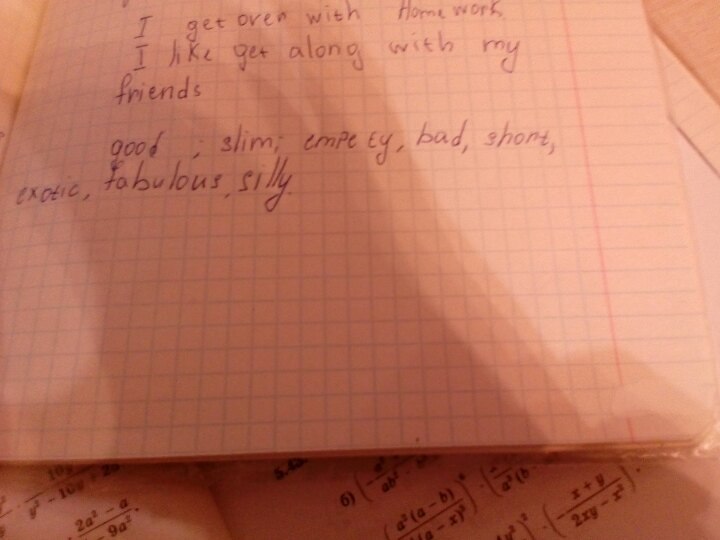 I get over with Homework
I like get along with my
friends
good ; slim; empety, bad, short,
exotic, fabulous, silly.
y² - 10y + 25
2a² - a
- 9a²
б)
ab²
a²(a - b)
(a - x)²
a²(b
x + y
2xy - x²